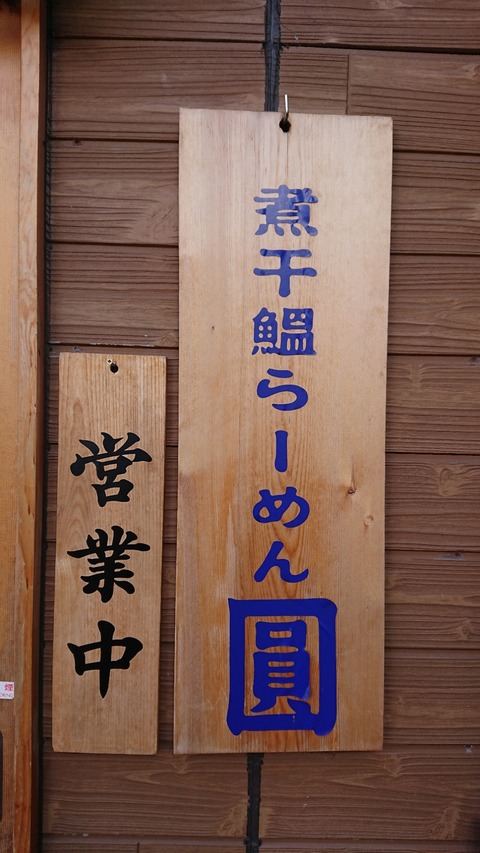 煮干鰮らーめん圓
営業中
煙